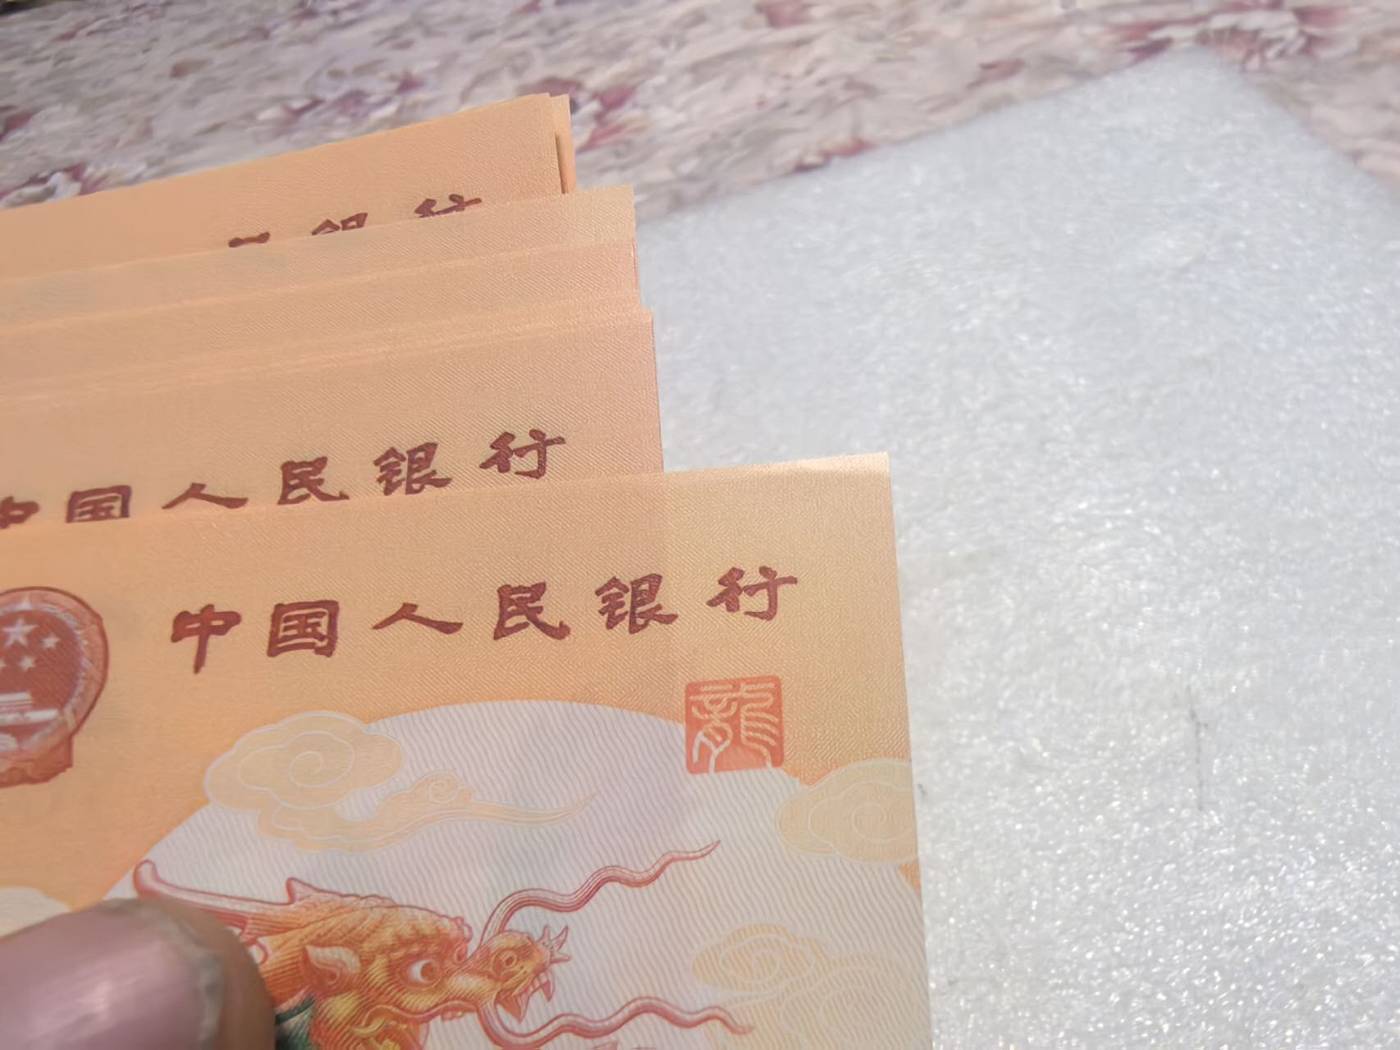 民银行
中国人民银行
中国人民银行
龍